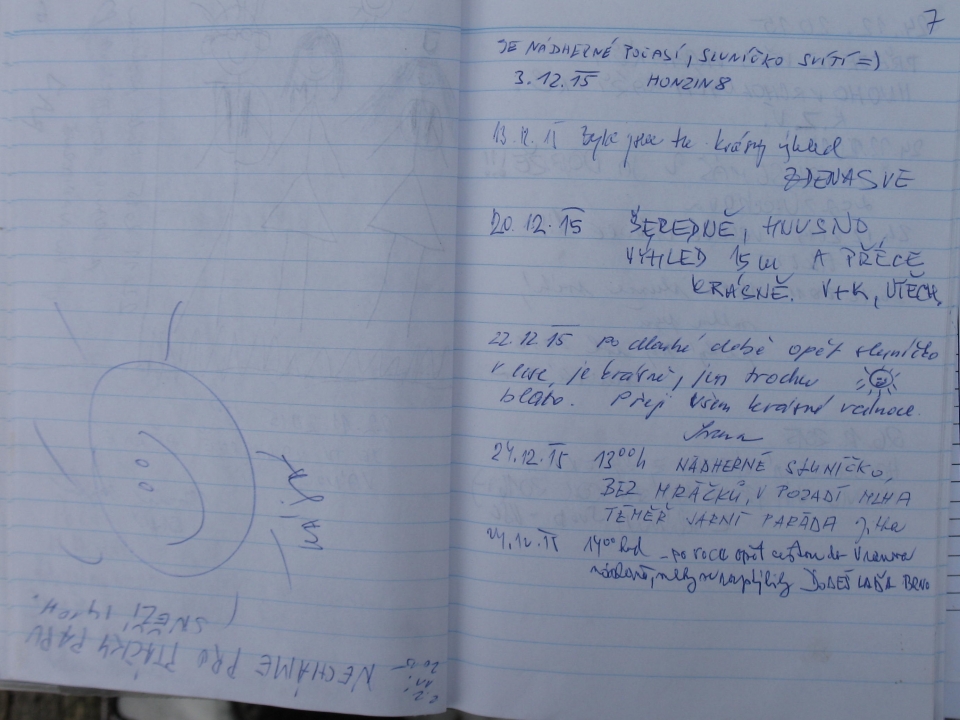 7
JE NÁDHERNÉ POČASÍ, SLUNÍČKO SVÍTÍ =)
3.12.15 HONZIN8
13.12.15 Byli jsme tu krásný výhled
ZDENASVE
20.12.15 ŠEREDNĚ, HNUSNO,
VÝHLED 15 m A PŘECE
KRÁSNĚ. V+K, UTĚCH.
22.12.15 po dlouhé době opět sluníčko
v lese, je krásně, jen trochu
bláto. Přeji všem krásné vánoce.
24.12.15 13⁰⁰h NÁDHERNÉ SLUNÍČKO,
BEZ MRÁČKŮ, V POZADÍ MLHA
TÉMĚŘ JARNÍ PARÁDA
24.12.15 14⁰⁰ hod - po roce opět cestou do Vranova
BRNO
MÍŠA
2.2.
2015
NECHÁME PRO PTÁČKY PÁRU
SNĚŽÍ 14